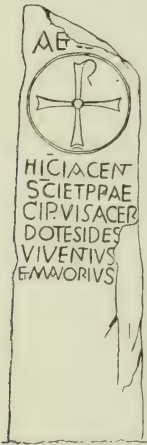 AE
HICIACENT
SCIETPPAE
CIPVISACER
DOTESIDES
VIVENTIVS
ETMAIORIVS